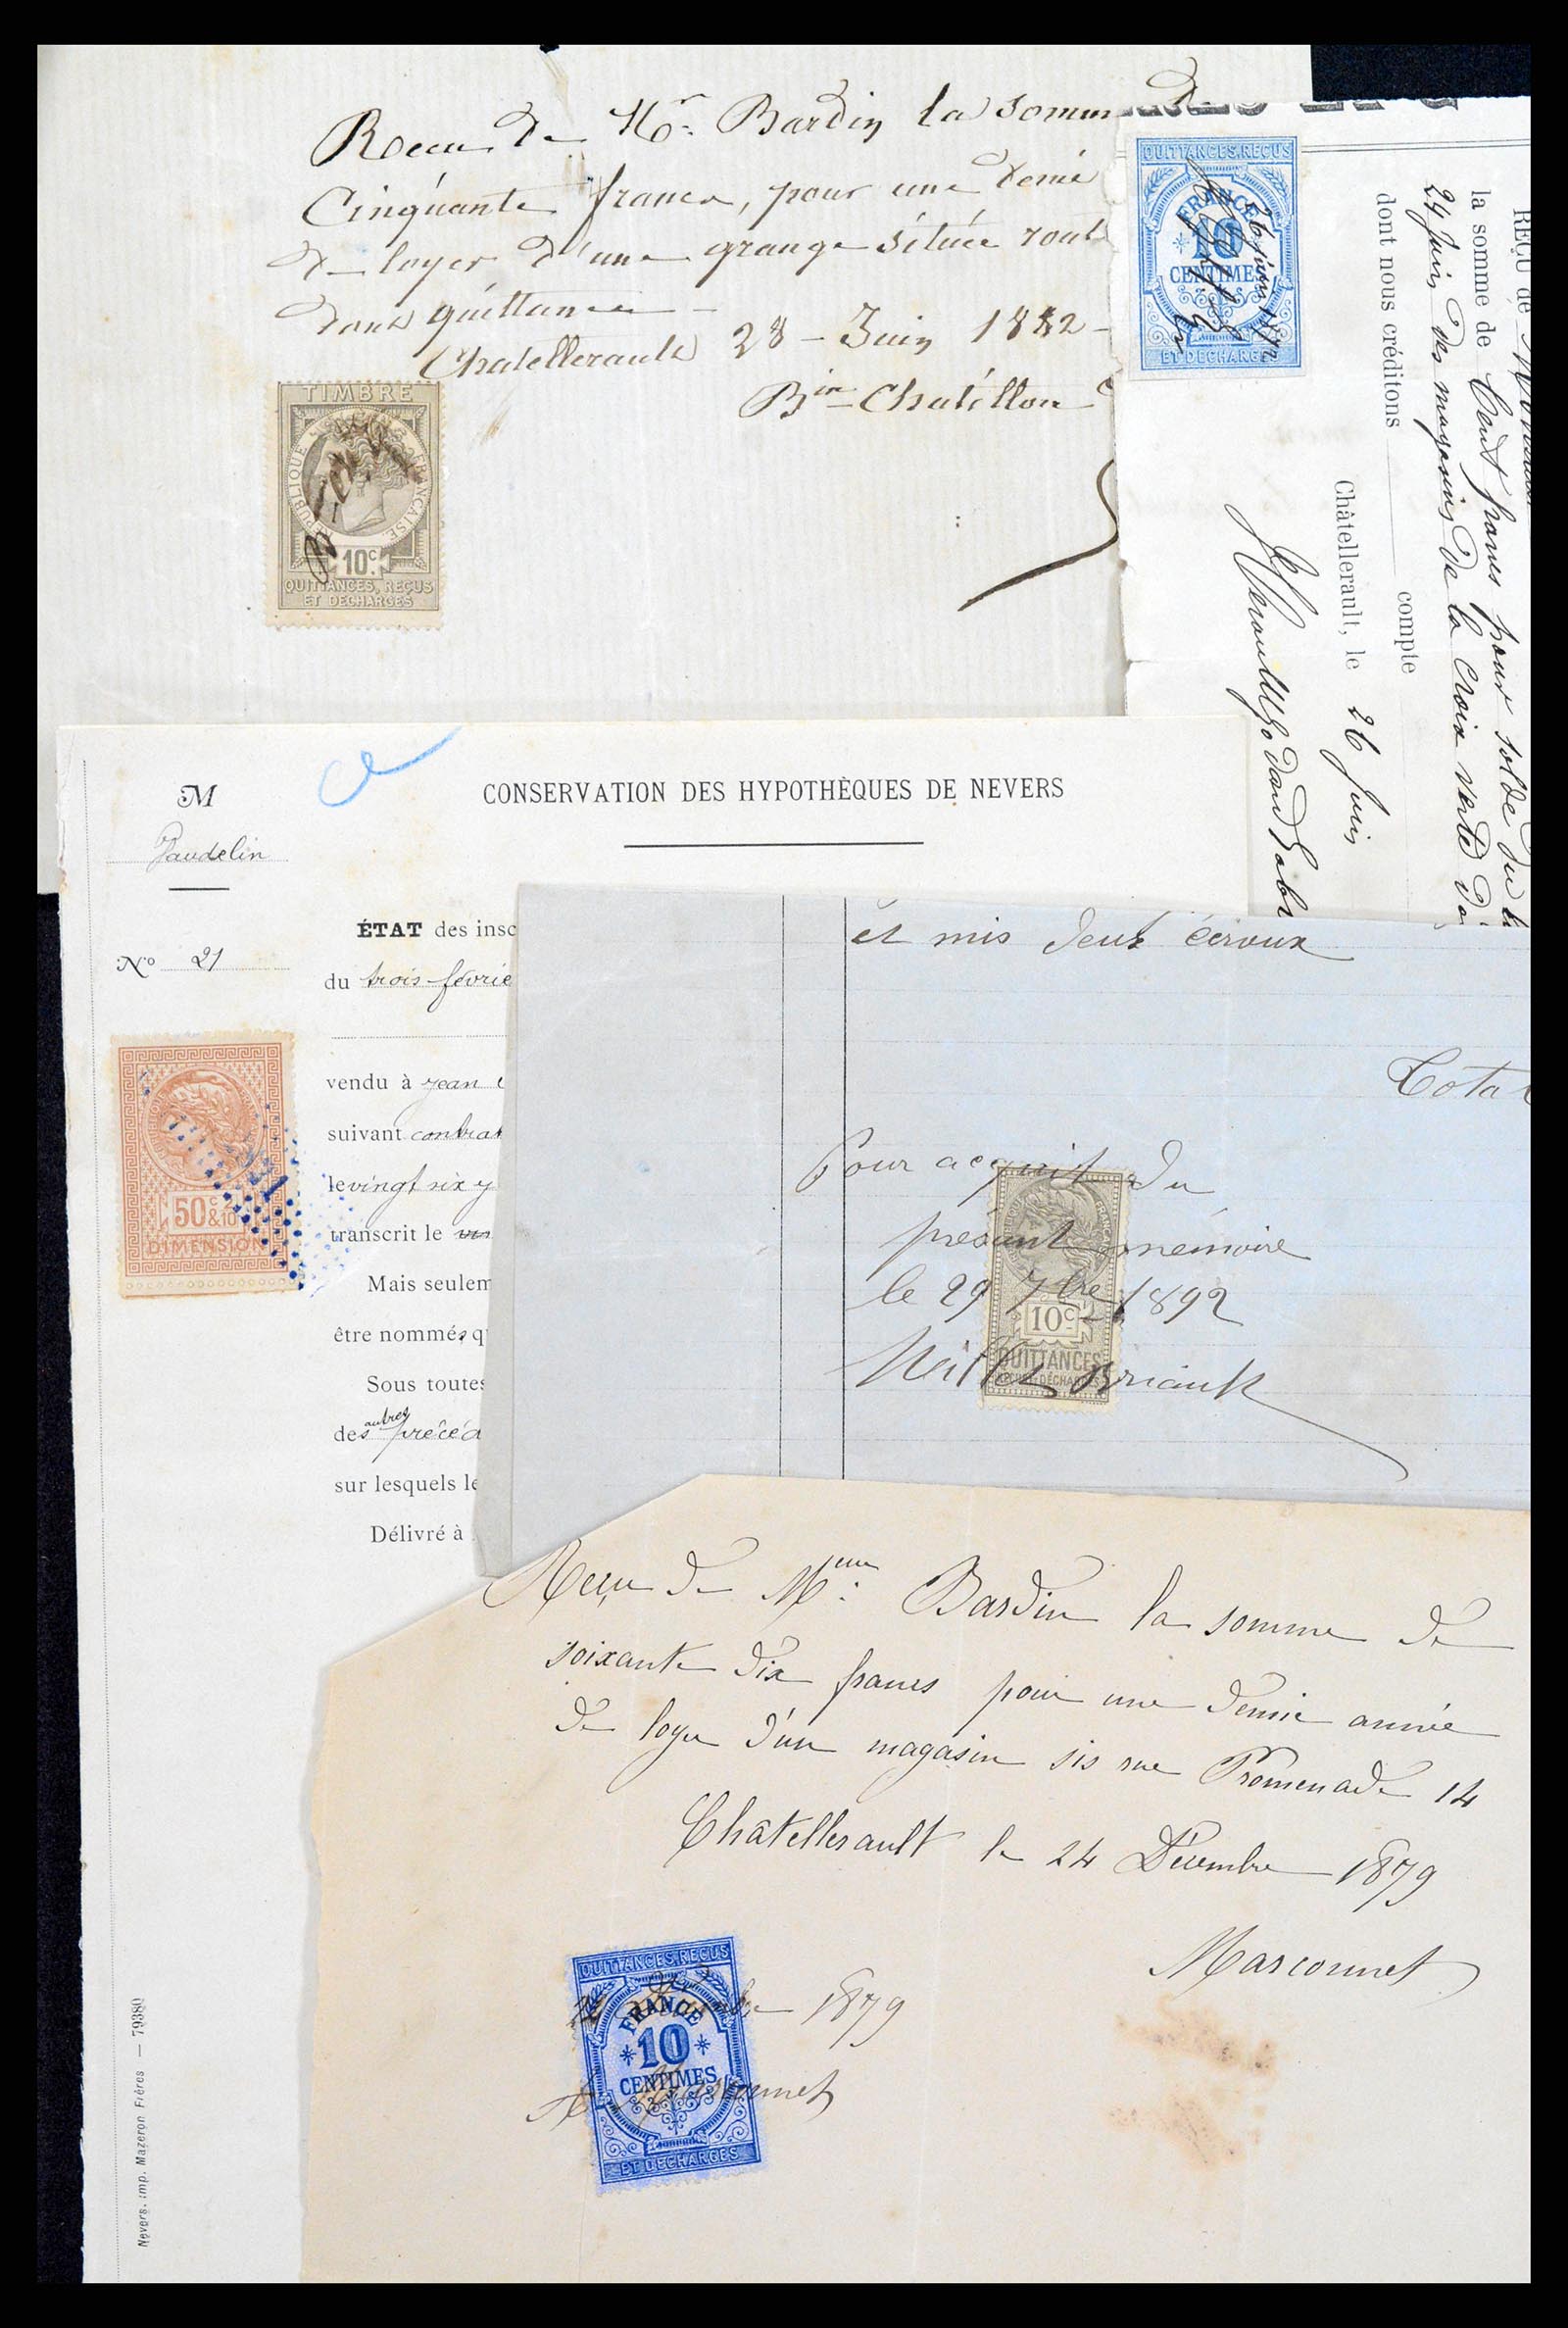 Recu de Mr. Bardin la somme de
Cinquante francs, pour une demie
de loyer d'une grange située route
dont quittance
Chatellerault 28 - Juin 1882 -
Bin Chatillon
TIMBRE
RÉPUBLIQUE FRANÇAISE
10c
QUITTANCES, REÇUS
ET DÉCHARGES
QUITTANCES.REÇUS
FRANCE
10
CENTIMES
ET DECHARGES
26 juin 1872
REÇU de Monsieur
la somme de Cent francs pour solde du
24 Juin des magasins de la Croix verte
dont nous créditons compte
Châtellerault, le 26 Juin
CONSERVATION DES HYPOTHÈQUES DE NEVERS
M
Jaudelin
No 21
ÉTAT des insc
du trois février
vendu à jean
suivant contrat
le vingt six
transcrit le
Mais seulem
être nommés q
Sous toutes
des autres précéd
sur lesquels le
Délivré à
50c
2/10
&
DIMENSION
Nevers. imp. Mazeron Frères — 79380
et mis deux écroux
Total
Pour acquit du
présent mémoire
le 29 7bre 1892
10c
QUITTANCES
REÇUS & DÉCHARGES
Briault
Reçu de Mme Bardin la somme de
soixante dix francs pour une demie année
de loyer d'un magasin sis rue Promenade 14
Châtellerault le 24 Décembre 1879
Marconnet
QUITTANCES.REÇUS
24 Décembre 1879
FRANCE
10
CENTIMES
Marconnet
ET DECHARGES